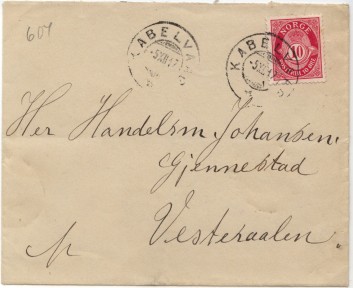 607
KABELVAAG
5 XII 17
KABEL
5 XII 1
NORGE
10
Her Handelsm Johansen.
Gjennestad
Vesteraalen.